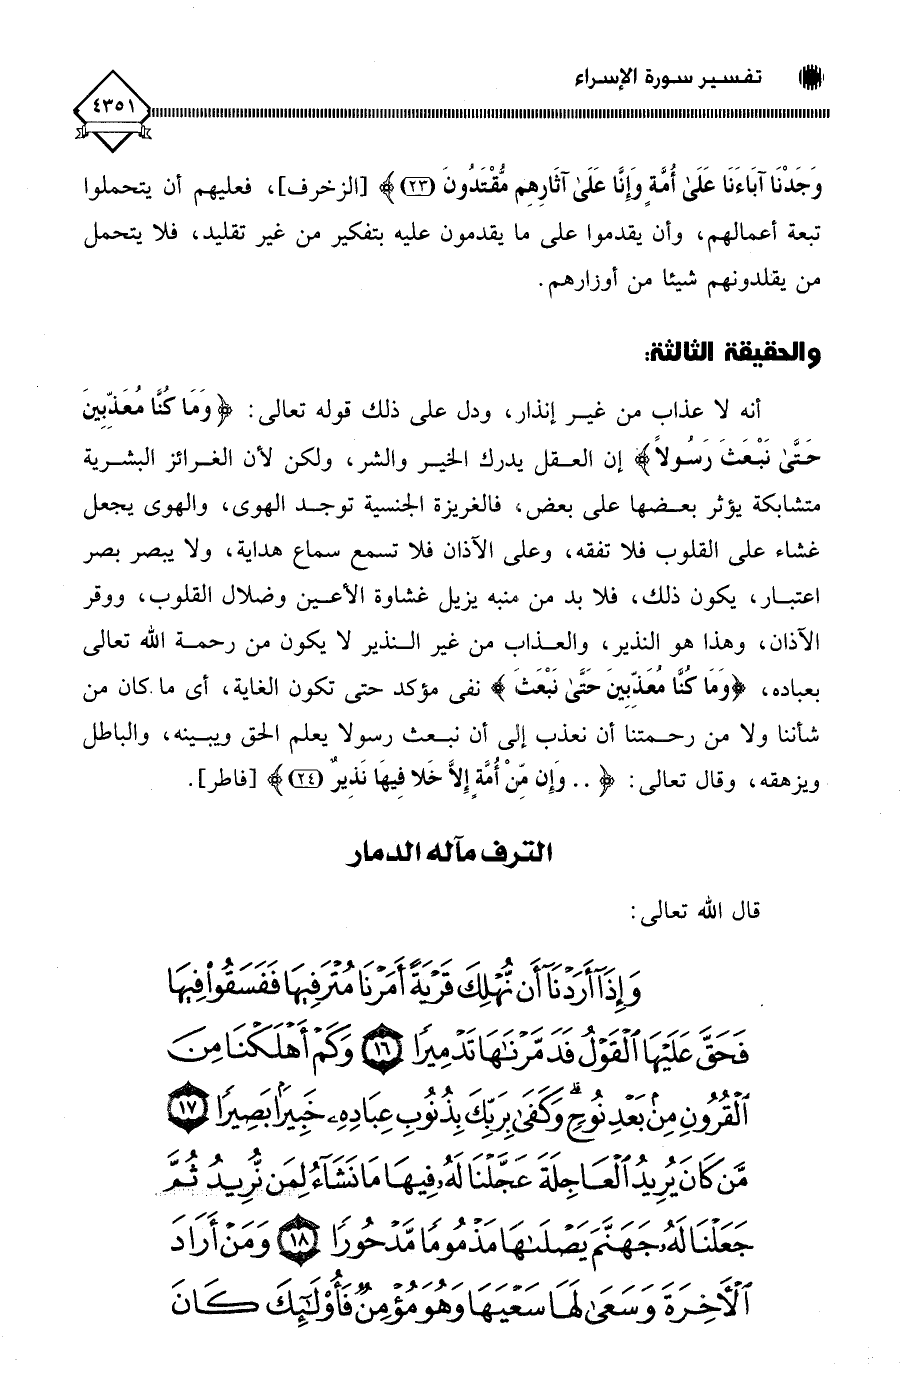 تفسير سورة الإسراء
٤٣٥١
وَجَدْنَا آبَاءَنَا عَلَىٰ أُمَّةٍ وَإِنَّا عَلَىٰ آثَارِهِم مُّقْتَدُونَ (٢٣)﴾ [الزخرف]، فعليهم أن يتحملوا
تبعة أعمالهم، وأن يقدموا على ما يقدمون عليه بتفكير من غير تقليد، فلا يتحمل
من يقلدونهم شيئا من أوزارهم.
والحقيقة الثالثة:
أنه لا عذاب من غير إنذار، ودل على ذلك قوله تعالى: ﴿وَمَا كُنَّا مُعَذِّبِينَ
حَتَّىٰ نَبْعَثَ رَسُولاً﴾ إن العقل يدرك الخير والشر، ولكن لأن الغرائز البشرية
متشابكة يؤثر بعضها على بعض، فالغريزة الجنسية توجد الهوى، والهوى يجعل
غشاء على القلوب فلا تفقه، وعلى الآذان فلا تسمع سماع هداية، ولا يبصر بصر
اعتبار، يكون ذلك، فلا بد من منبه يزيل غشاوة الأعين وضلال القلوب، ووقر
الآذان، وهذا هو النذير، والعذاب من غير النذير لا يكون من رحمة الله تعالى
بعباده، ﴿وَمَا كُنَّا مُعَذِّبِينَ حَتَّىٰ نَبْعَثَ﴾ نفى مؤكد حتى تكون الغاية، أى ما كان من
شأننا ولا من رحمتنا أن نعذب إلى أن نبعث رسولا يعلم الحق ويبينه، والباطل
ويزهقه، وقال تعالى: ﴿.. وَإِن مِّنْ أُمَّةٍ إِلاَّ خَلا فِيهَا نَذِيرٌ (٢٤)﴾ [فاطر].
الترف مآله الدمار
قال الله تعالى:
وَإِذَآ أَرَدْنَآ أَن نُّهْلِكَ قَرْيَةً أَمَرْنَا مُتْرَفِيهَا فَفَسَقُوا۟ فِيهَا
فَحَقَّ عَلَيْهَا ٱلْقَوْلُ فَدَمَّرْنَـٰهَا تَدْمِيرًا ١٦ وَكَمْ أَهْلَكْنَا مِنَ
ٱلْقُرُونِ مِنۢ بَعْدِ نُوحٍ ۗ وَكَفَىٰ بِرَبِّكَ بِذُنُوبِ عِبَادِهِۦ خَبِيرًۢا بَصِيرًا ١٧
مَّن كَانَ يُرِيدُ ٱلْعَاجِلَةَ عَجَّلْنَا لَهُۥ فِيهَا مَا نَشَآءُ لِمَن نُّرِيدُ ثُمَّ
جَعَلْنَا لَهُۥ جَهَنَّمَ يَصْلَىٰهَا مَذْمُومًا مَّدْحُورًا ١٨ وَمَنْ أَرَادَ
ٱلْـَٔاخِرَةَ وَسَعَىٰ لَهَا سَعْيَهَا وَهُوَ مُؤْمِنٌ فَأُو۟لَـٰٓئِكَ كَانَ